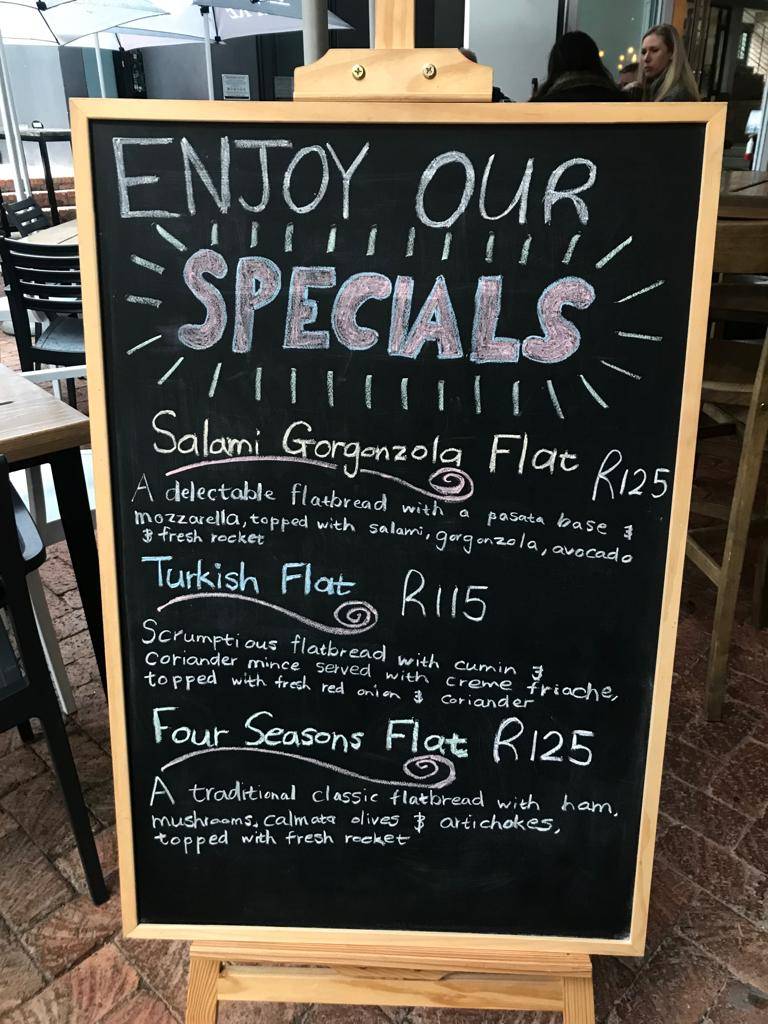 ENJOY OUR
SPECIALS
Salami Gorgonzola Flat R125
A delectable flatbread with a pasata base &
mozzarella, topped with salami, gorgonzola, avocado
& fresh rocket
Turkish Flat R115
Scrumptious flatbread with cumin &
Coriander mince served with creme friache,
topped with fresh red onion & coriander
Four Seasons Flat R125
A traditional classic flatbread with ham,
mushrooms, calmata olives & artichokes,
topped with fresh rocket